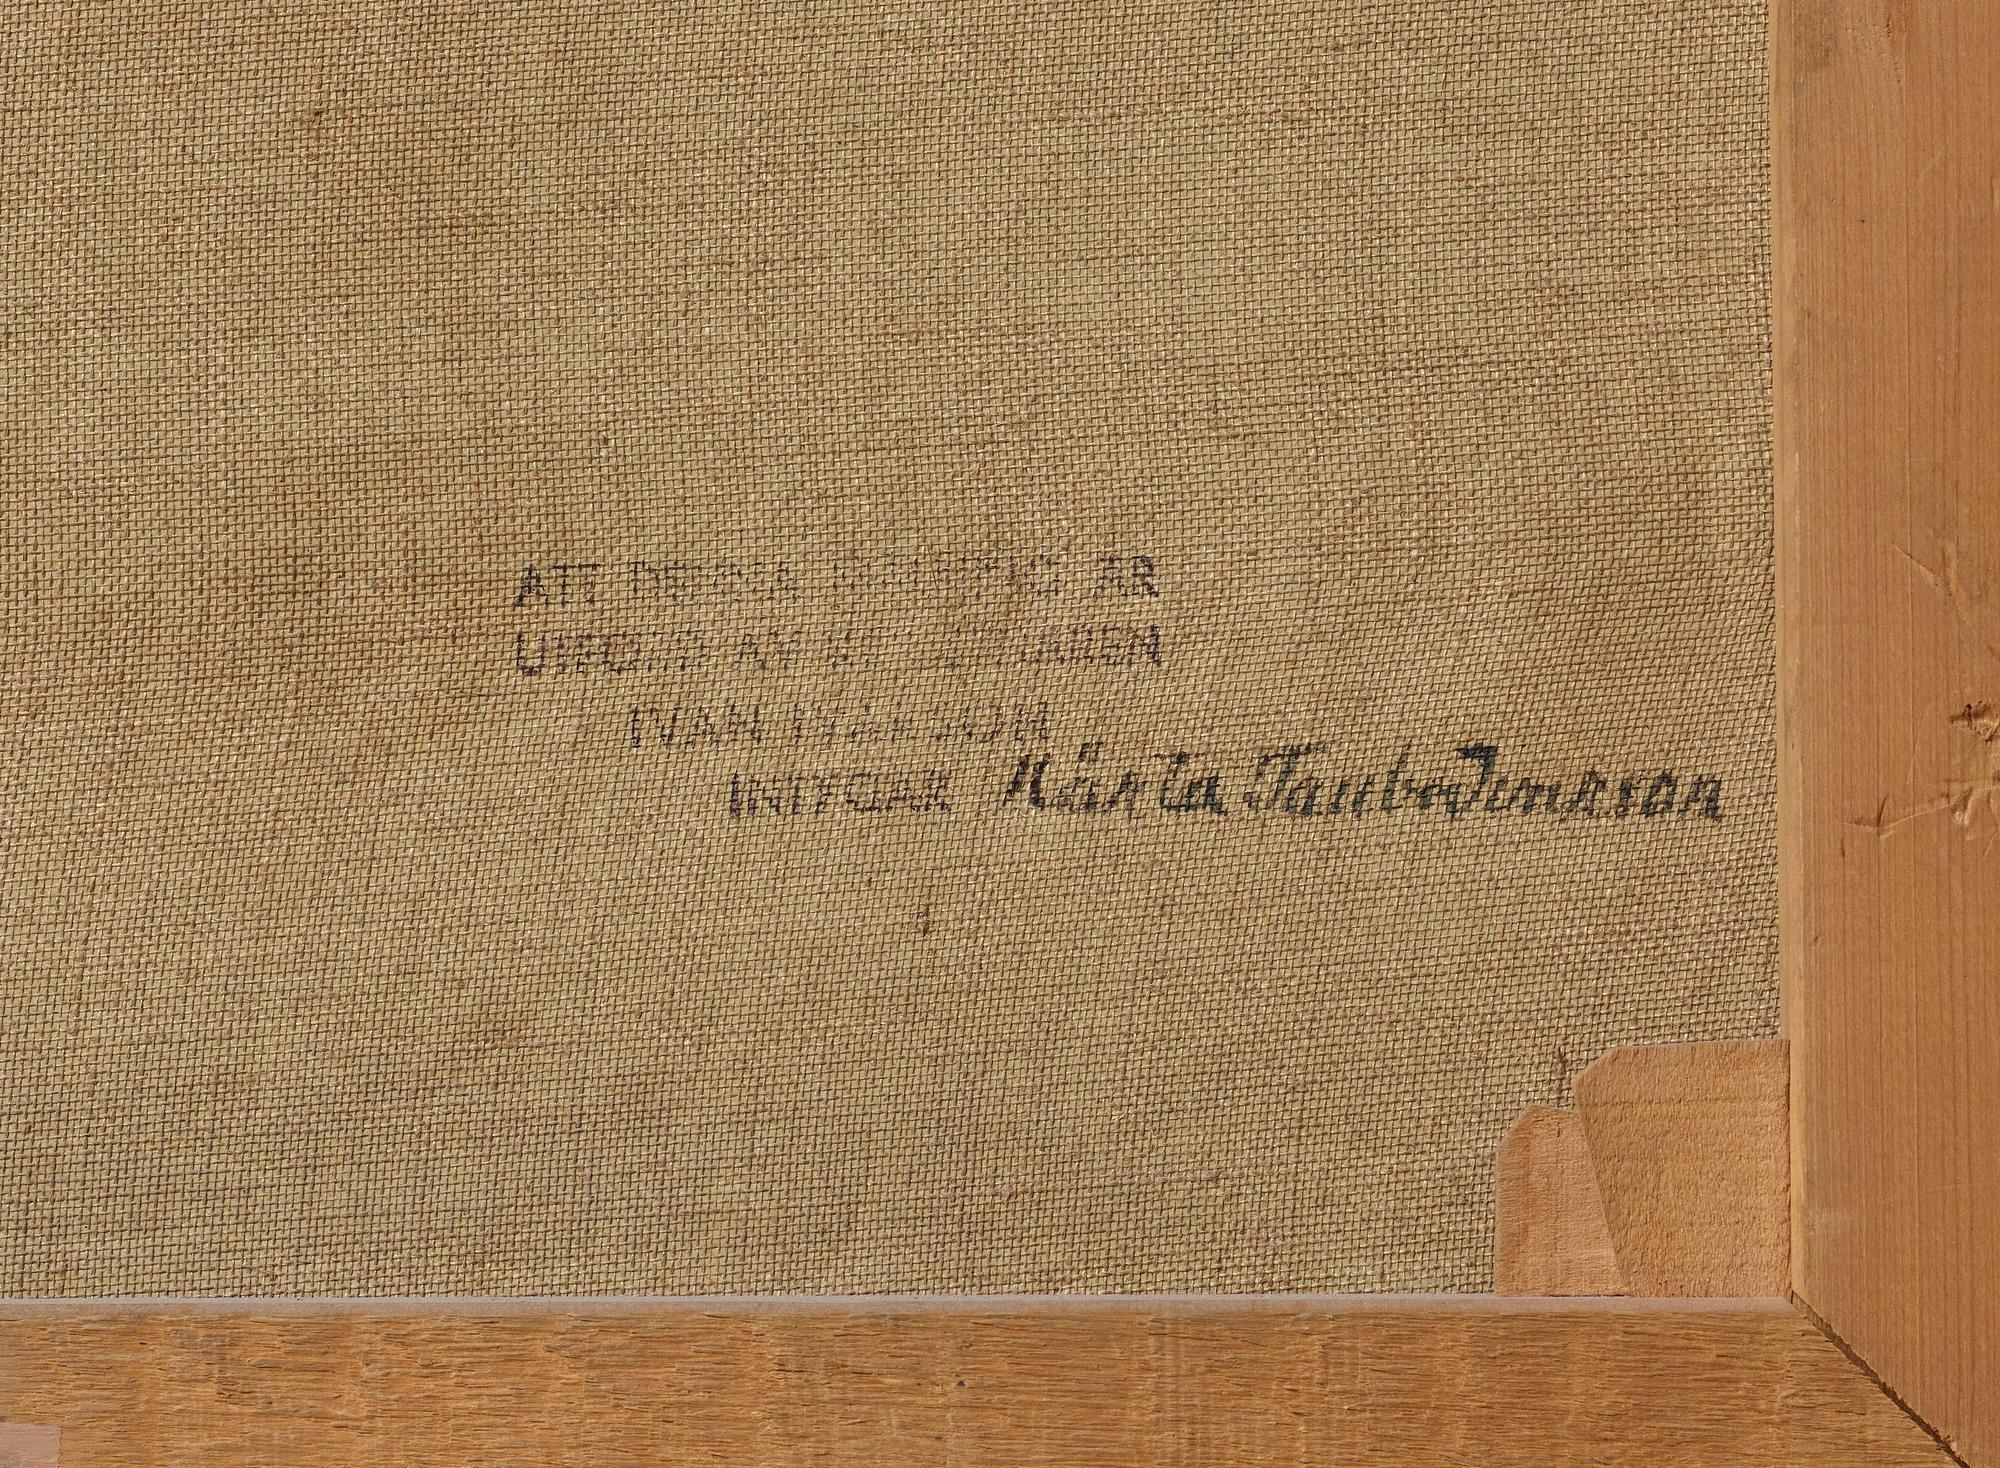 ATT DENNA MÅLNING ÄR
UTFÖRD AV KONSTNÄREN
IVAN IVARSON
INTYGAR Märta Taube Ivarson